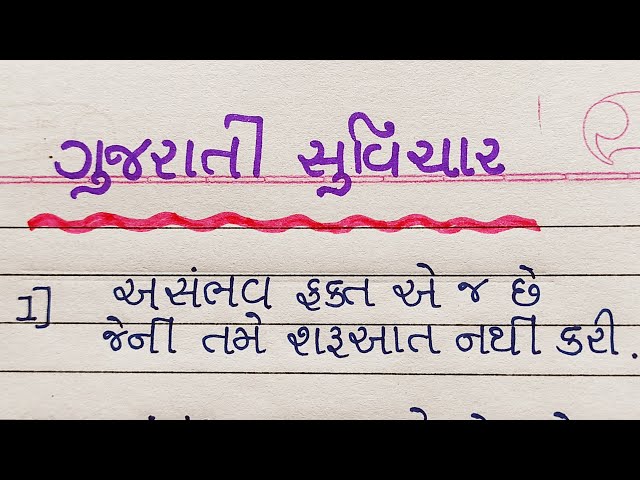 ગુજરાતી સુવિચાર
1] અસંભવ ફક્ત એ જ છે
જેની તમે શરૂઆત નથી કરી.